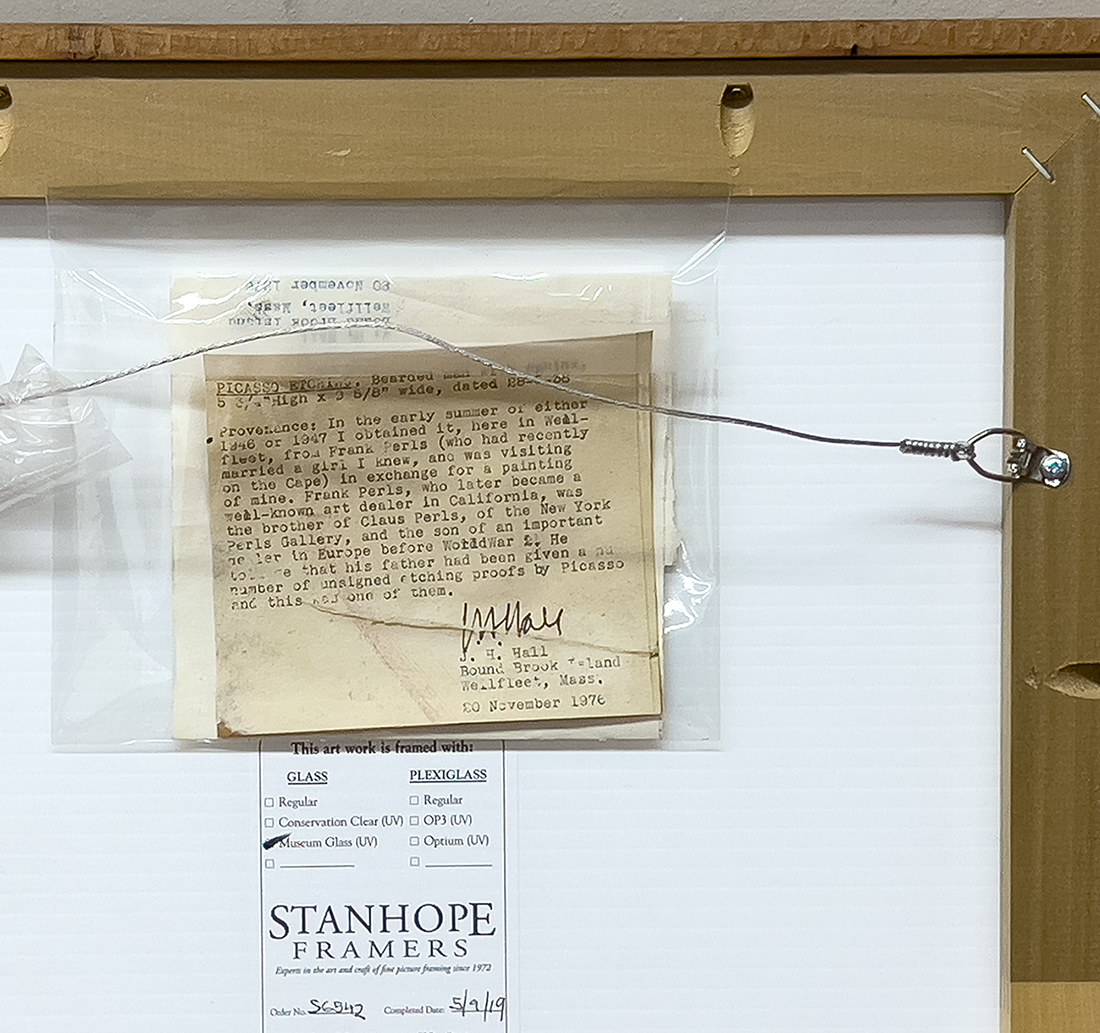 20 November 1976
Wellfleet, Mass.
Bound Brook Island
PICASSO ETCHING. Bearded man
5 3/4" High x 3 5/8" wide, dated
Provenance: In the early summer of either
1946 or 1947 I obtained it, here in Well-
fleet, from Frank Perls (who had recently
married a girl I knew, and was visiting
on the Cape) in exchange for a painting
of mine. Frank Perls, who later became a
well-known art dealer in California, was
the brother of Claus Perls, of the New York
Perls Gallery, and the son of an important
dealer in Europe before WorldWar 2. He
told me that his father had been given a nu
number of unsigned etching proofs by Picasso
and this was one of them.
J. H. Hall
Bound Brook Island
Wellfleet, Mass.
20 November 1976
This art work is framed with:
GLASS PLEXIGLASS
Regular Regular
Conservation Clear (UV) OP3 (UV)
Museum Glass (UV) Optium (UV)
STANHOPE
FRAMERS
Experts in the art and craft of fine picture framing since 1972
Order No. S6542 Completed Date: 5/9/19